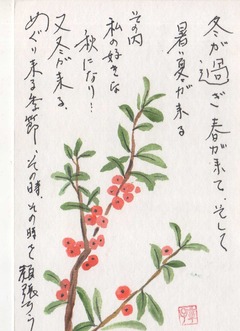 冬が過ぎ春が来て、そして
暑い夏が来る
その内
私の好きな
秋になり…
又冬が来る、
めぐり来る季節、その時、その時を
頑張ろう